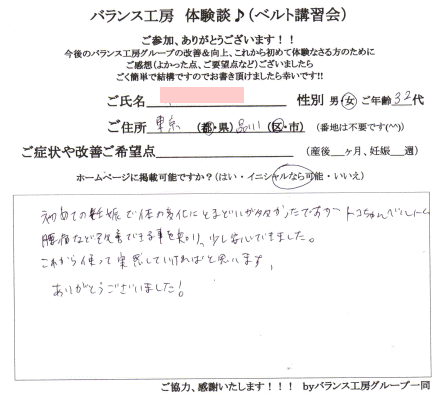 バランス工房 体験談♪(ベルト講習会)
ご参加、ありがとうございます!!
今後のバランス工房グループの改善&向上、これから初めて体験なさる方のために
ご感想(よかった点、ご要望点など)ございましたら
ごく簡単で結構ですのでお書き頂けましたら幸いです!!
ご氏名 性別 男・女 ご年齢32代
ご住所 東京 都・県) 品川 (区・市) (番地は不要です(^^))
ご症状や改善ご希望点 (産後 ヶ月、妊娠 週)
ホームページに掲載可能ですか?(はい・イニシャルなら可能・いいえ)
初めての妊娠で体の変化にとまどいが多かったですが、トコちゃんベルトで
腰痛など改善できる事を知り、少し安心できました。
これから使って実感していければと思います。
ありがとうございました!
ご協力、感謝いたします!!! byバランス工房グループ一同